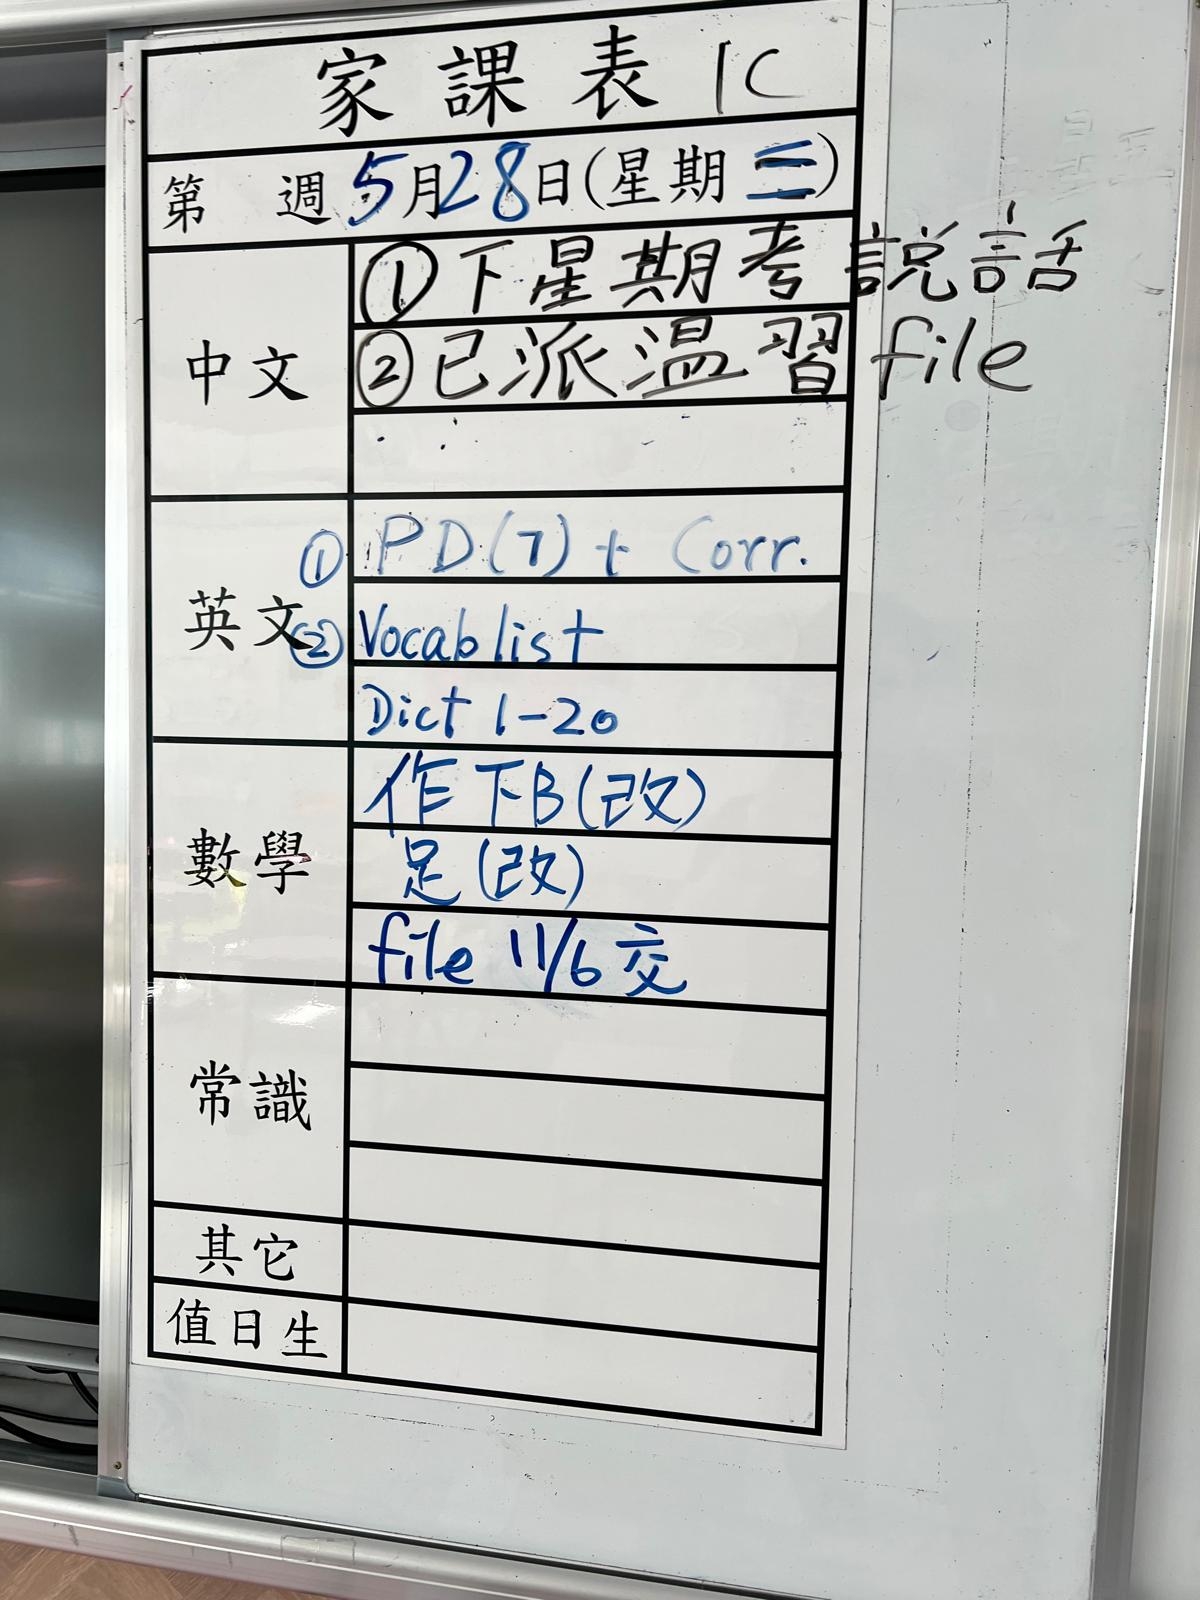 家課表 1C
第 週 5月28日(星期三)
中文
①下星期考說話
②已派溫習file
英文
① PD(7) + Corr.
② Vocab list
Dict 1-20
數學
作下B(改)
足(改)
file 11/6 交
常識
其它
值日生